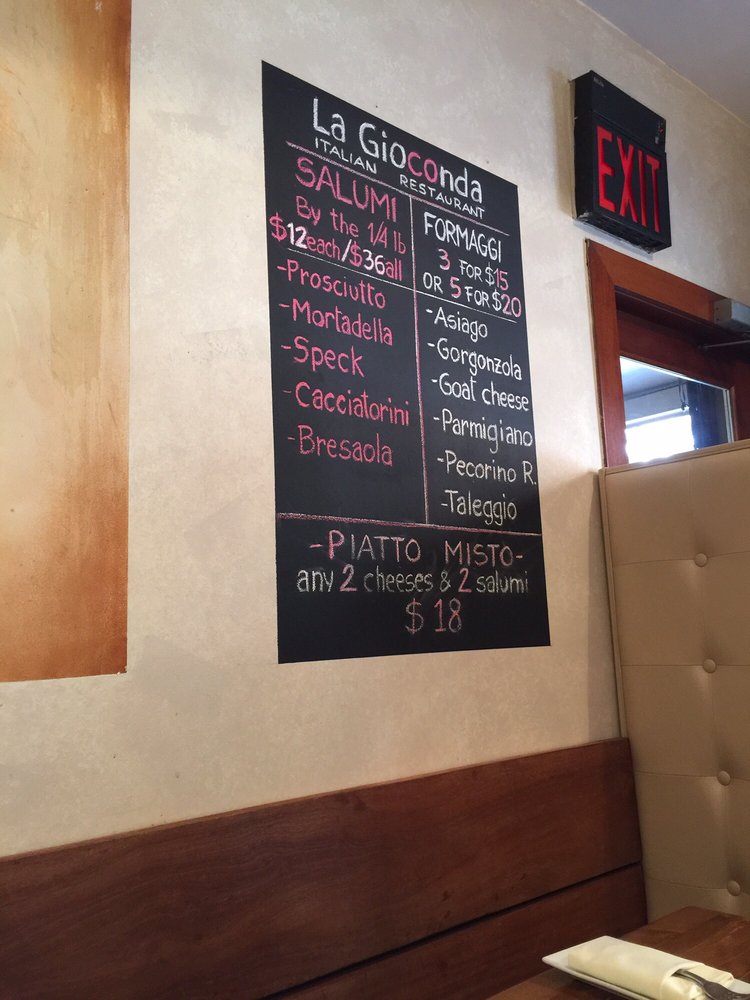 La Gioconda
ITALIAN RESTAURANT
SALUMI
By the 1/4 lb
$12each/$36all
-Prosciutto
-Mortadella
-Speck
-Cacciatorini
-Bresaola
FORMAGGI
3 FOR $15
OR 5 FOR $20
-Asiago
-Gorgonzola
-Goat cheese
-Parmigiano
-Pecorino R.
-Taleggio
-PIATTO MISTO-
any 2 cheeses & 2 salumi
$18
EXIT